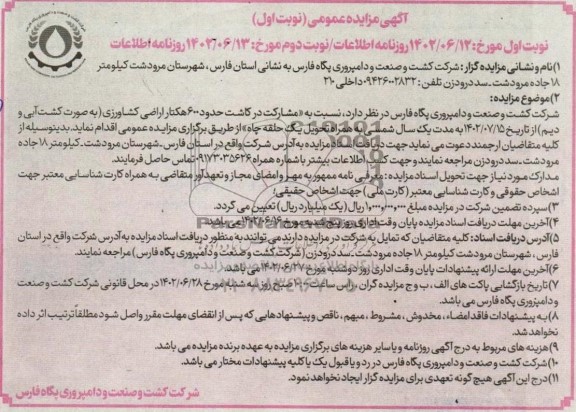 آگهی مزایده عمومی (نوبت اول)
نوبت اول مورخ: ۱۴۰۲/۰۶/۱۲ روزنامه اطلاعات/ نوبت دوم مورخ: ۱۴۰۲/۰۶/۱۳ روزنامه اطلاعات
۱) نام و نشانی مزایده گزار: شرکت کشت و صنعت و دامپروری پگاه فارس به نشانی استان فارس، شهرستان مرودشت کیلومتر
۱۸ جاده مرودشت - سد درودزن تلفن: ۰۹۴۲۶۰۰۲۸۳۲ داخلی ۲۱۰
۲) موضوع مزایده:
شرکت کشت و صنعت و دامپروری پگاه فارس در نظر دارد، نسبت به «مشارکت در کاشت حدود ۶۰۰ هکتار اراضی کشاورزی (به صورت کشت آبی و
دیم) از تاریخ ۱۴۰۲/۰۷/۱۵ به مدت یک سال شمسی به همراه تحویل یک حلقه چاه» از طریق برگزاری مزایده عمومی اقدام نماید. بدینوسیله از
کلیه متقاضیان ارجمند دعوت می نماید جهت دریافت اسناد مزایده به آدرس شرکت واقع در استان فارس - شهرستان مرودشت - کیلومتر ۱۸ جاده
مرودشت - سد درودزن مراجعه نمایند و جهت کسب اطلاعات بیشتر با شماره همراه ۰۹۱۷۳۰۳۵۶۲۶ تماس حاصل فرمایند.
مدارک مورد نیاز جهت تحویل اسناد مزایده: معرفی نامه ممهور به مهر و امضای مجاز و تعهدآور متقاضی به همراه کارت شناسایی معتبر جهت
اشخاص حقوقی و کارت شناسایی معتبر (کارت ملی) جهت اشخاص حقیقی؛
۳) سپرده تضمین شرکت در مزایده مبلغ ۱,۰۰۰,۰۰۰,۰۰۰ ریال (یک میلیارد ریال) تعیین می گردد.
۴) آخرین مهلت دریافت اسناد مزایده پایان وقت اداری روز پنجشنبه مورخ ۱۴۰۲/۰۶/۱۶ می باشد.
۵) آدرس دریافت اسناد: کلیه متقاضیان که تمایل به شرکت در مزایده دارند می توانند به منظور دریافت اسناد مزایده به آدرس شرکت واقع در استان
فارس، شهرستان مرودشت کیلومتر ۱۸ جاده مرودشت - سد درودزن (شرکت کشت و صنعت و دامپروری پگاه فارس) مراجعه نمایند.
۶) آخرین مهلت ارائه پیشنهادات پایان وقت اداری روز دوشنبه مورخ ۱۴۰۲/۰۶/۲۷ می باشد.
۷) تاریخ بازگشایی پاکت های الف، ب و ج مزایده گران، راس ساعت صبح روز سه شنبه مورخ ۱۴۰۲/۰۶/۲۸ در محل قانونی شرکت کشت و صنعت
و دامپروری پگاه فارس می باشد.
۸) به پیشنهادات فاقد امضاء، مخدوش، مشروط، مبهم، ناقص و پیشنهادهایی که پس از انقضای مهلت مقرر واصل شود مطلقاً ترتیب اثر داده
نخواهد شد.
۹) هزینه های مربوط به درج آگهی روزنامه و یا سایر هزینه های برگزاری مزایده به عهده برنده مزایده می باشد.
۱۰) شرکت کشت و صنعت و دامپروری پگاه فارس در رد و یا قبول یک یا کلیه پیشنهادات مختار می باشد.
۱۱) درج این آگهی هیچ گونه تعهدی برای مزایده گزار ایجاد نخواهد نمود.
شرکت کشت و صنعت و دامپروری پگاه فارس